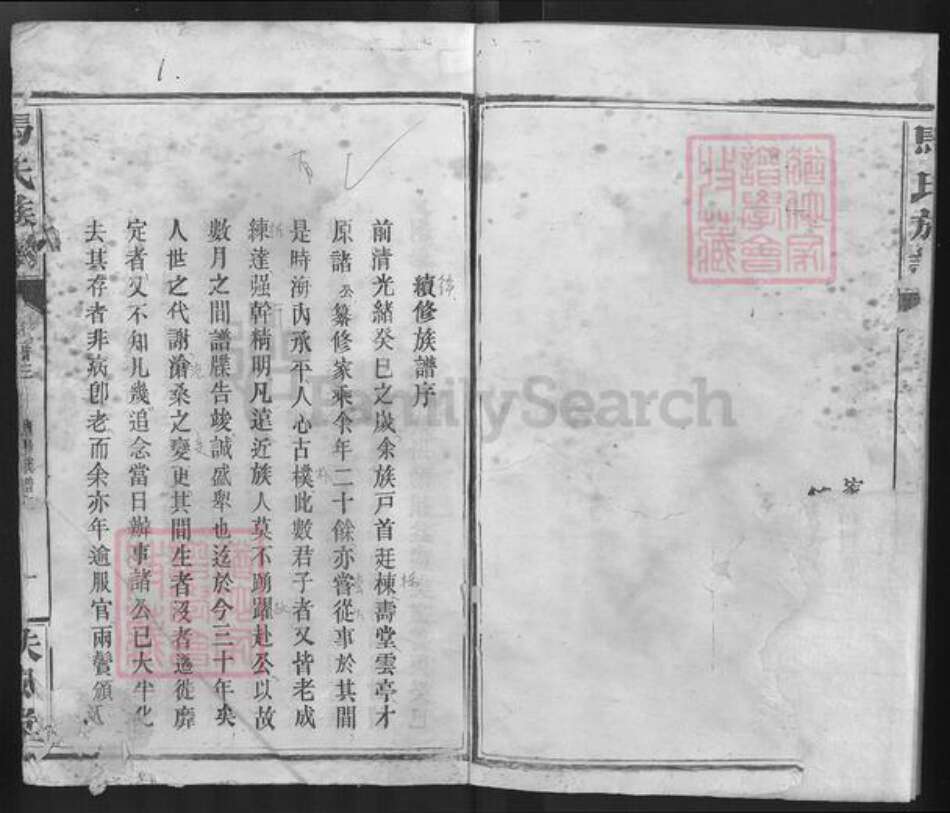 1.
續修族譜序
前清光緒癸巳之歲余族戸首廷棟壽堂雲亭才
原諸公纂修家乘余年二十餘亦嘗從事於其間
是時海內承平人心古樸此數君子者又皆老成
練達强幹精明凡遠近族人莫不踴躍赴公以故
數月之間譜牒告竣誠盛舉也迄於今三十年矣
人世之代謝滄桑之變更其間生者沒者遷徙靡
定者又不知凡幾追念當日辦事諸公已大半化
去其存者非病卽老而余亦年逾服官兩鬢頒
馬氏族譜
馬氏族
譜學會
收藏
FamilySearch